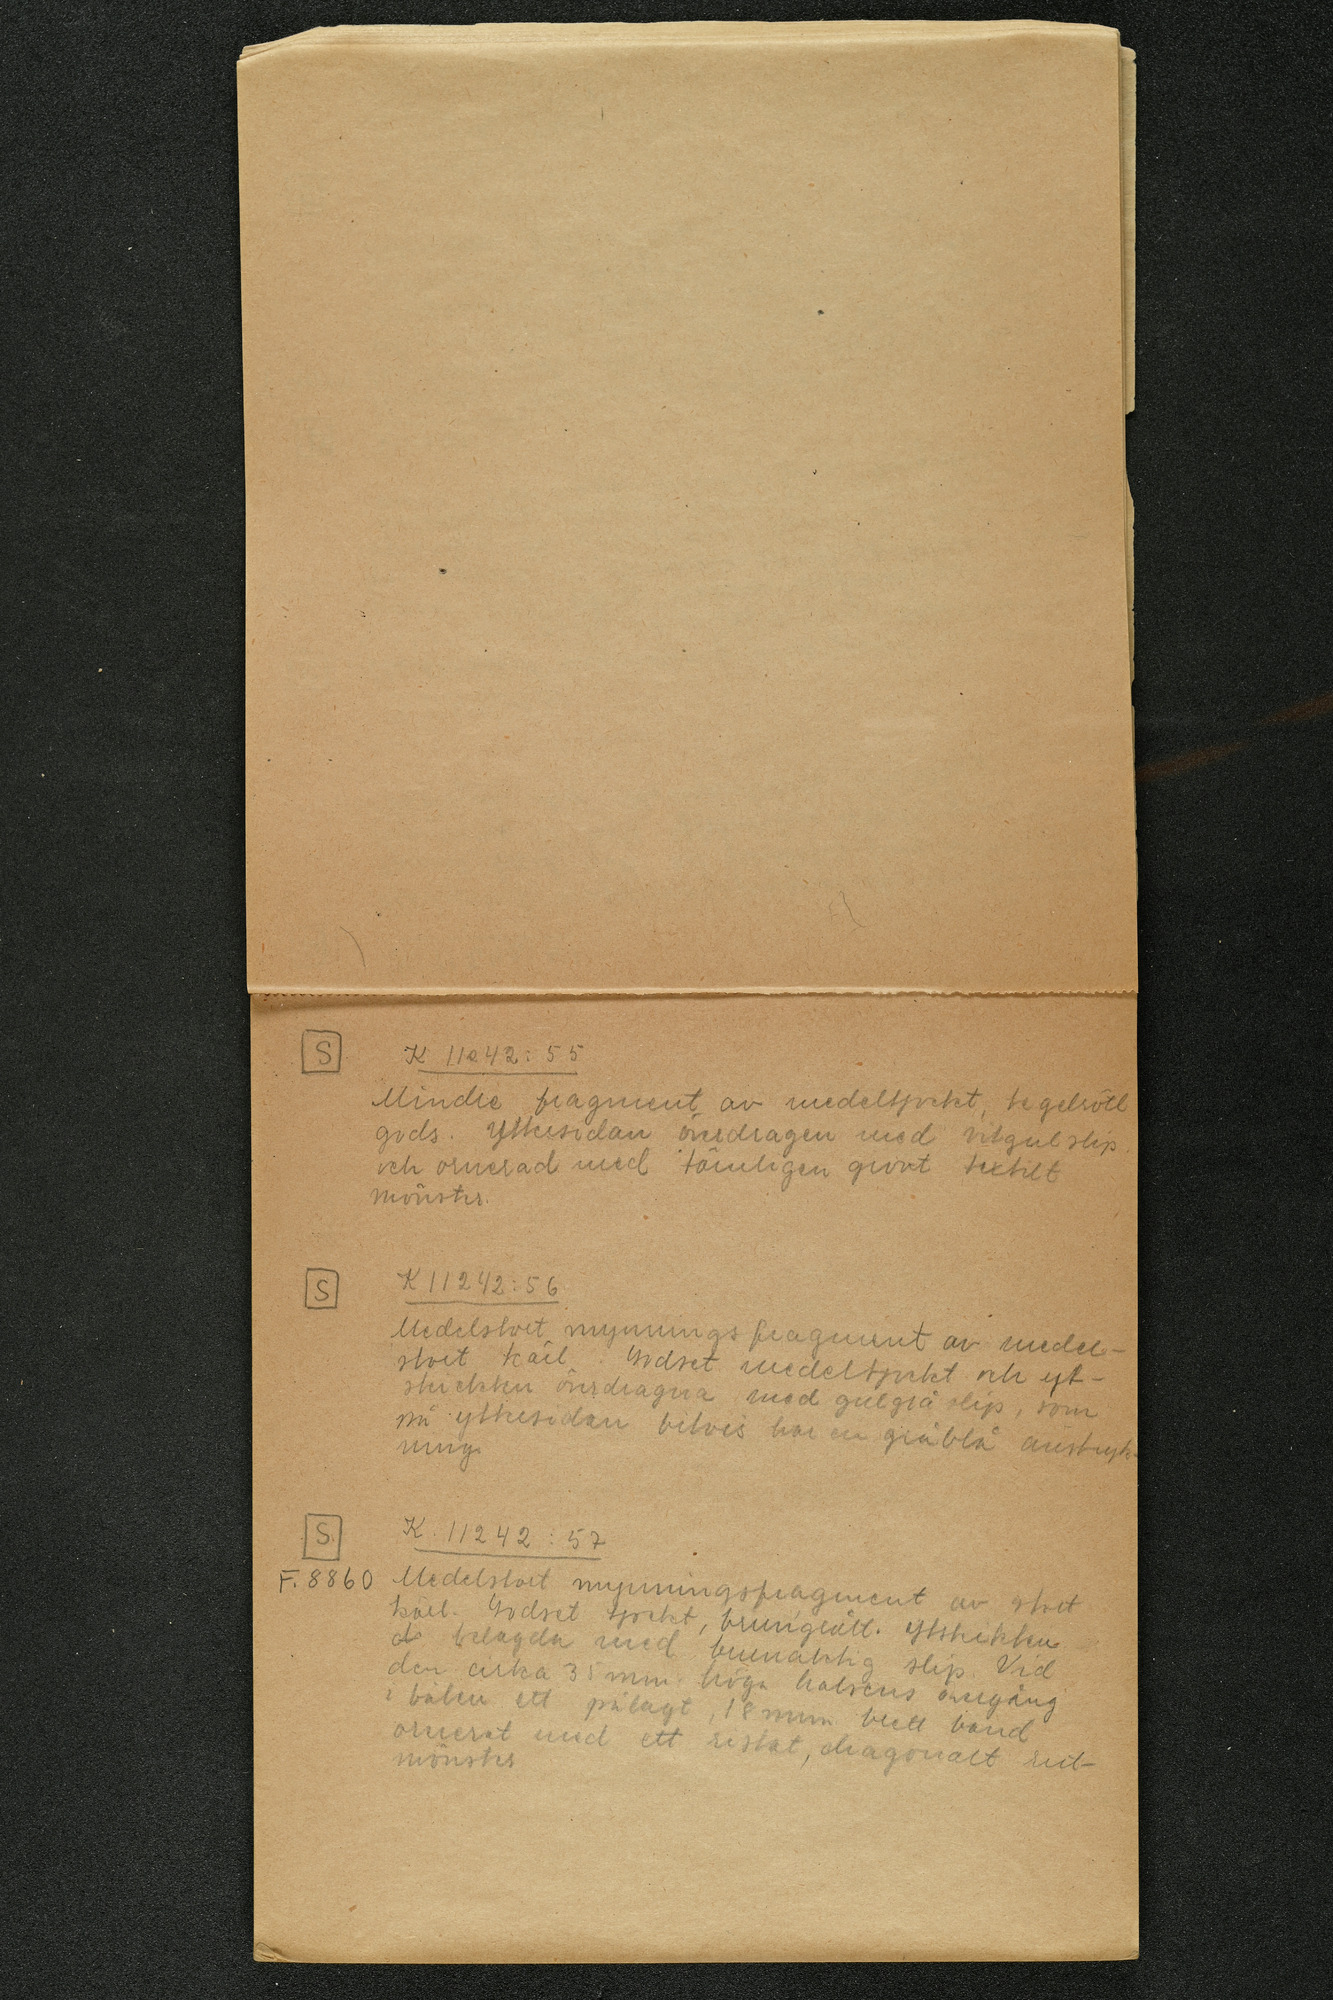 S K 11242:55
Mindre fragment av medeltjockt, tegelrött
gods. Yttersidan överdragen med vitgul slip
och ornerad med tämligen grovt textilt
mönster.
S K 11242:56
Medelstort mynningsfragment av medel-
stort kärl. Godset medeltjockt och yt-
överdragna med gulgrå slip, som
på yttersidan bitvis har en gråblå anstryk-
ning
S. K. 11242:57
F. 8860 Medelstort mynningsfragment av stort
kärl. Godset tjockt, brungrått. Ytskikten
belagda med brunaktig slip. Vid
den cirka 35 mm höga halsens övergång
i bålen ett pålagt, 18 mm brett band
ornerat med ett ristat, diagonalt rut-
mönster